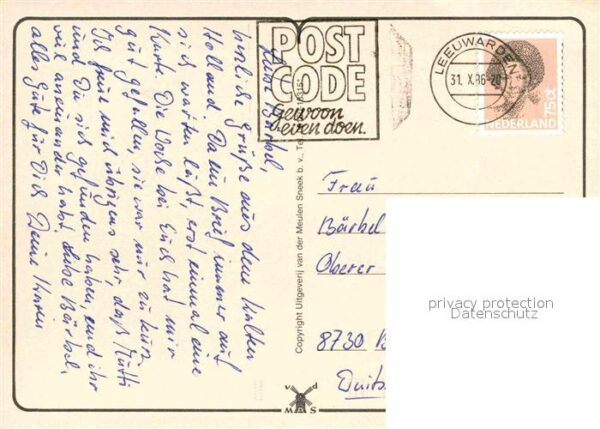 POST
CODE
Gewoon
even doen.
LEEUWARDEN
31. X. 86-20
75ct
NEDERLAND
Liebe Bärbel,
herzliche Grüße aus dem kalten
Holland. Da ein Brief immer auf
sich warten läßt, erst einmal eine
Karte. Die Woche bei Euch hat mir
gut gefallen, sie war nur zu kurz.
Ich freue mich übrigens sehr, daß Mutti
und Du sich gefunden haben, und ihr
viel aneinander habt. Liebe Bärbel,
alles Gute für Dich Deine
Copyright Uitgeverij van der Meulen Sneek b. v., Te
Frau
Bärbel
Oberer
8730 B
Duits
privacy protection
Datenschutz
v d
M S